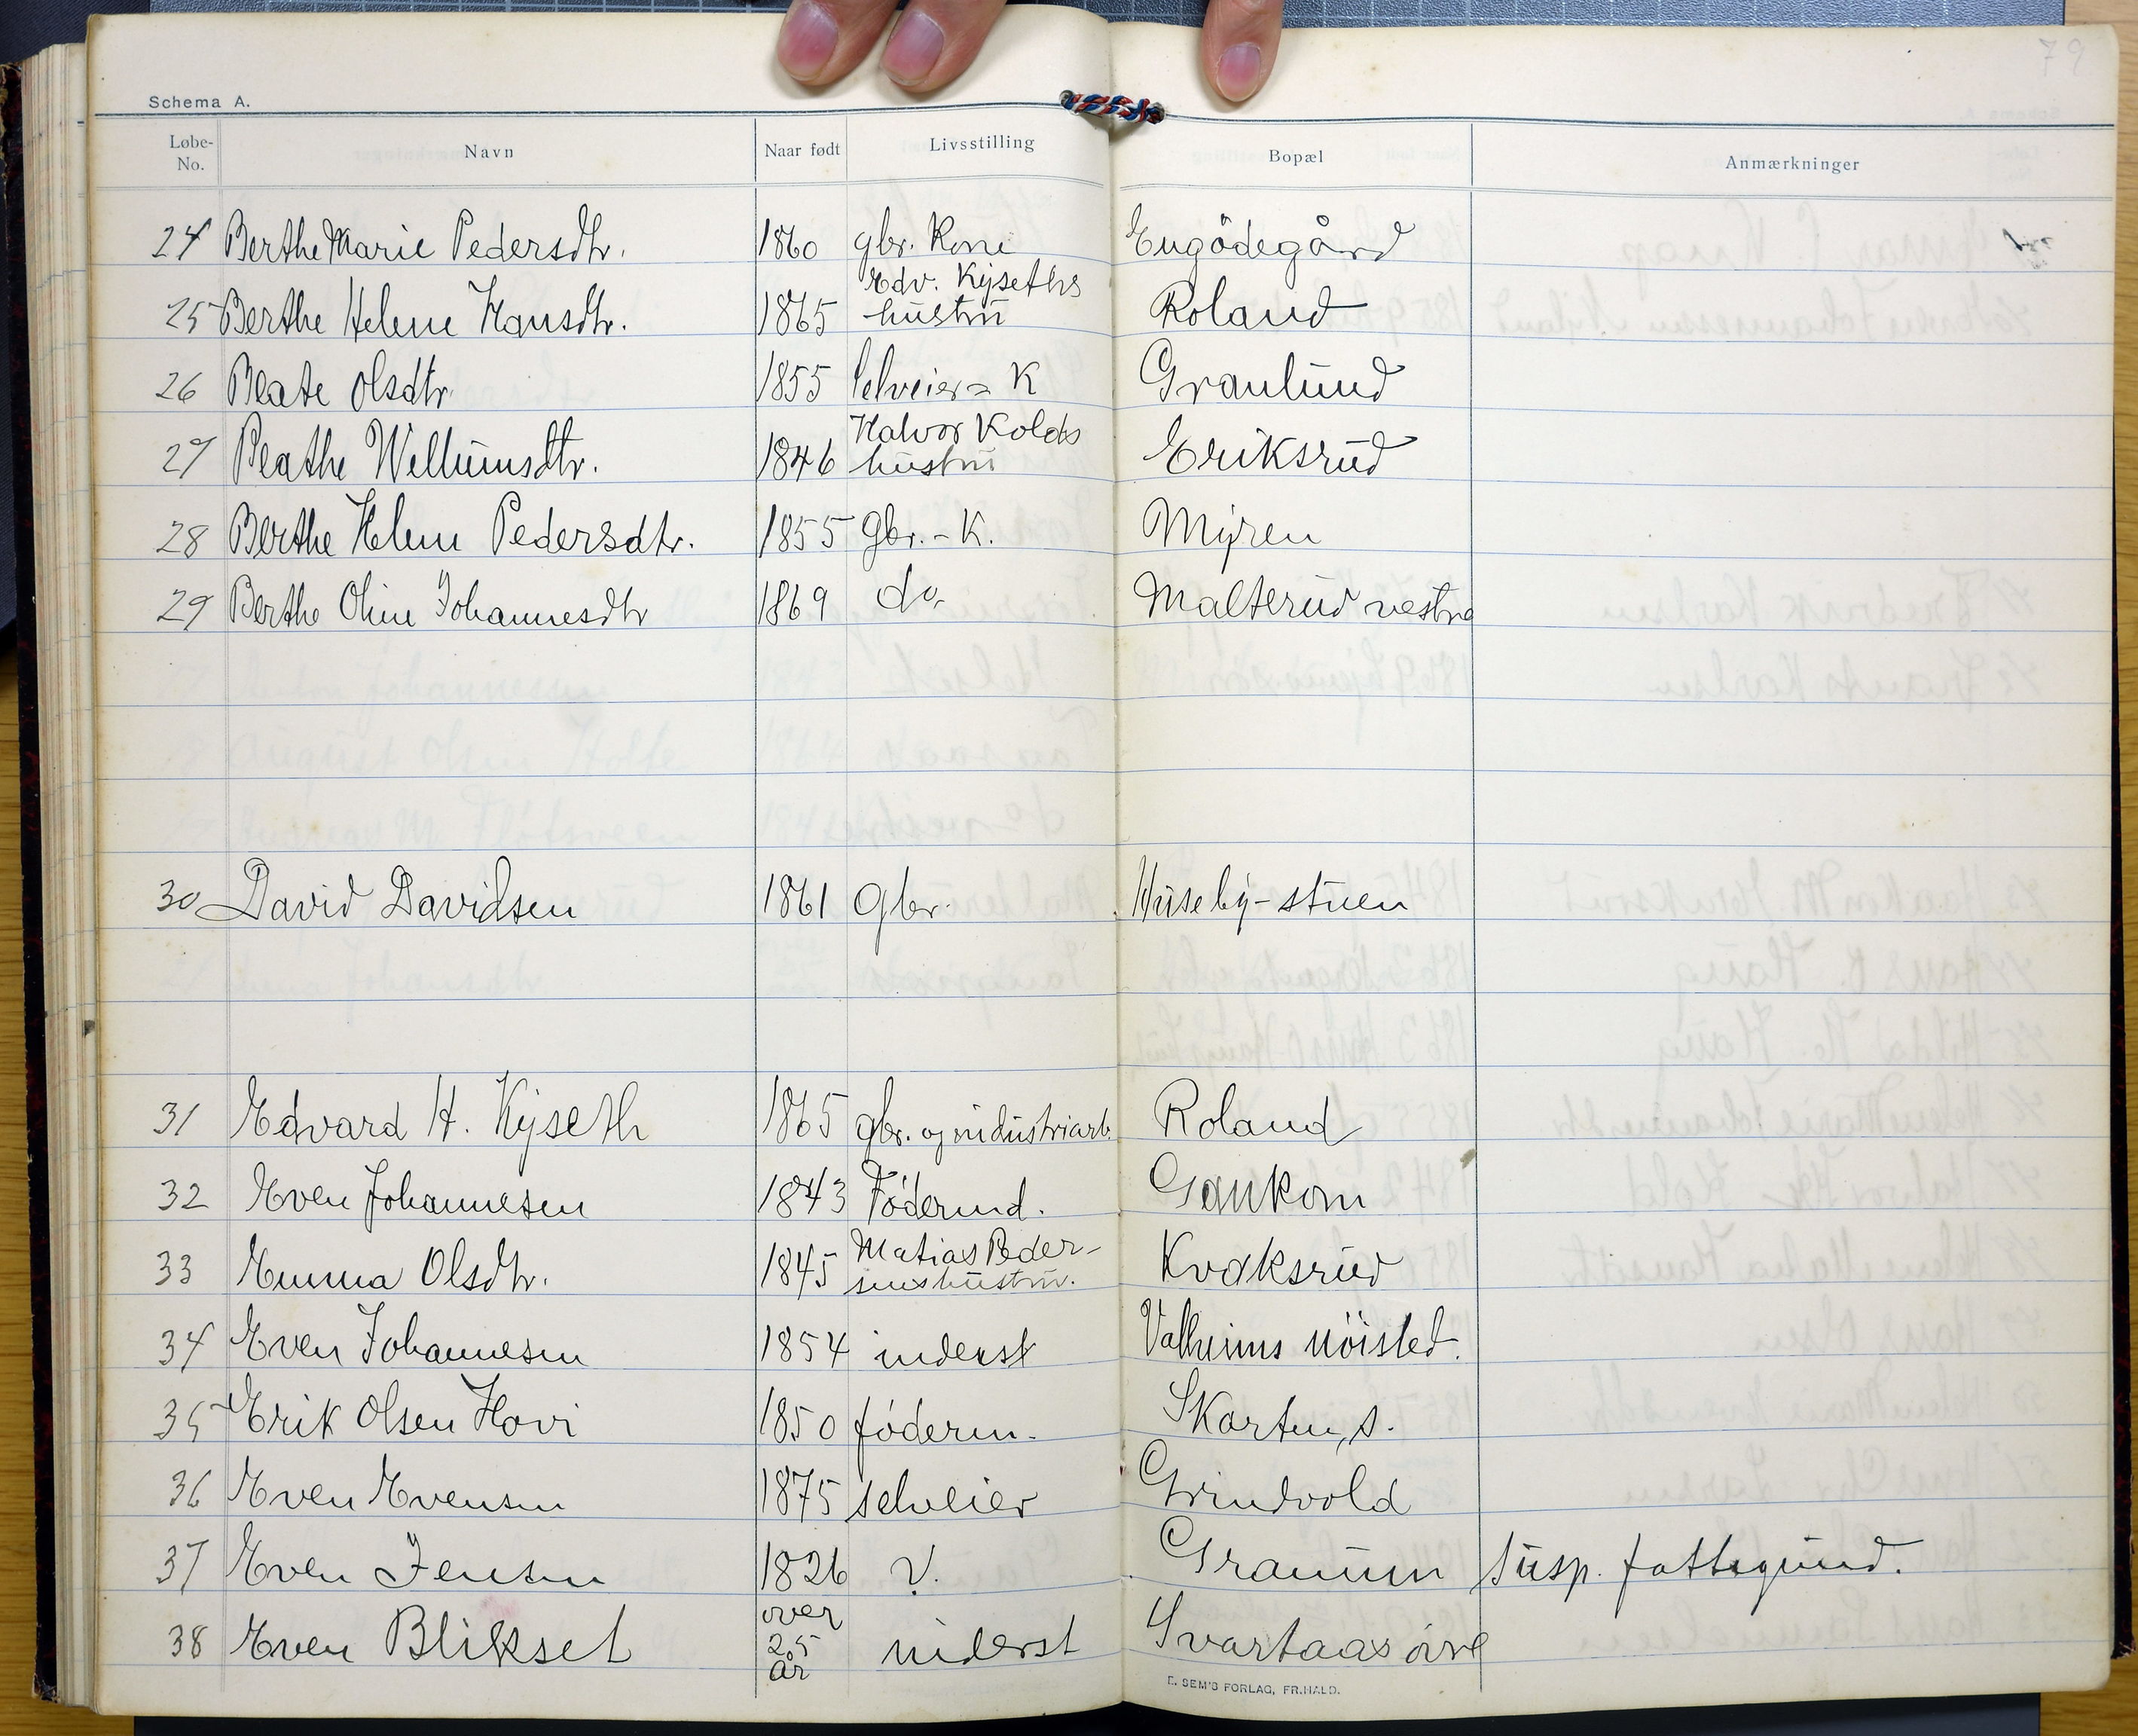 79
Schema A.
Løbe-No. Navn Naar født Livsstilling Bopæl Anmærkninger
24 Berthe Marie Pedersdtr. 1860 gbr. Kone Engödegård
25 Berthe Helene Hansdtr. 1865 Edv. Kyseths hustru Roland
26 Beate Olsdtr. 1855 selveier = K Granlund
27 Beathe Wellumsdtr. 1846 Halvor Kolds hustru Eriksrud
28 Berthe Helene Pedersdtr. 1855 Gbr. - K. Myren
29 Berthe Oline Johannesdtr 1869 do. Malterud vestre
30 David Davidsen 1861 Gbr. Huseby-stuen
31 Edvard H. Kyseth 1865 gbr. og industriarb. Roland
32 Even Johannesen 1843 Födermd. Gaukom
33 Emma Olsdtr. 1845 Matias Peder-
sens hustru. Kvaksrud
34 Even Johannesen 1854 inderst Valhеims nöisled.
35 Erik Olsen Hovi 1850 föderm. Skarten, s.
36 Even Evensen 1875 selveier Grindvold
37 Even Jensen 1826 ?. Granum susp. fattigund.
38 Even Blikset over 25 år inderst Svartaas övre
E. SEM'S FORLAG, FR.HALD.